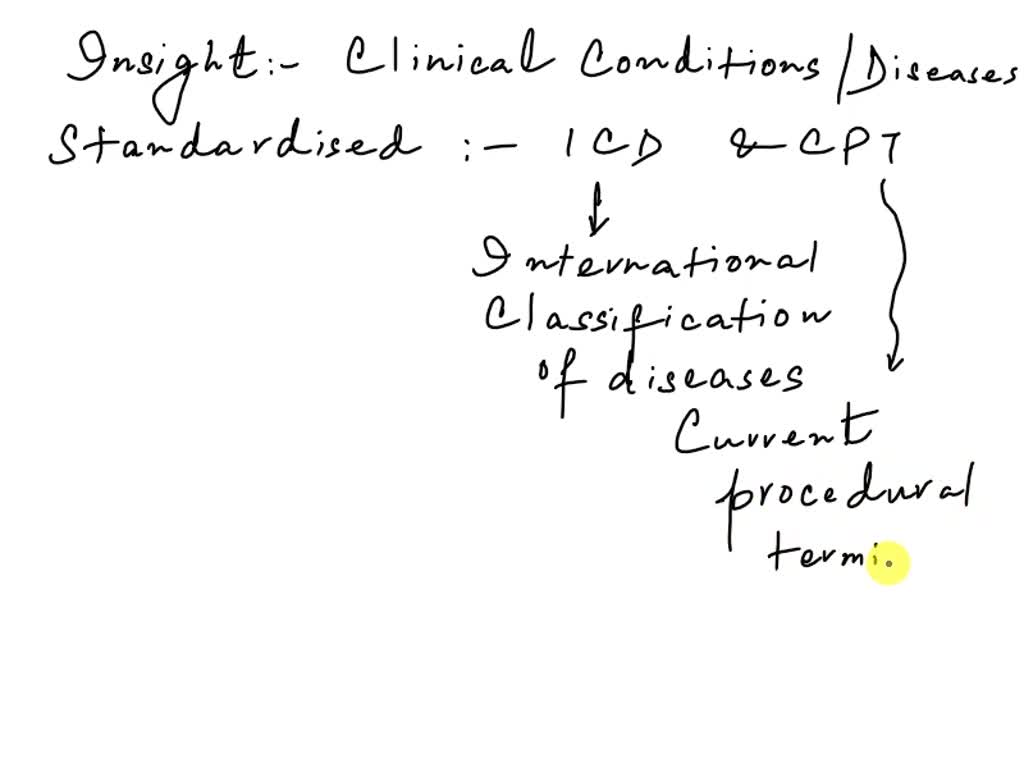 Insight:- Clinical Conditions/Diseases
Standardised :- ICD & CPT
International
Classification
of diseases
Current
procedural
termi